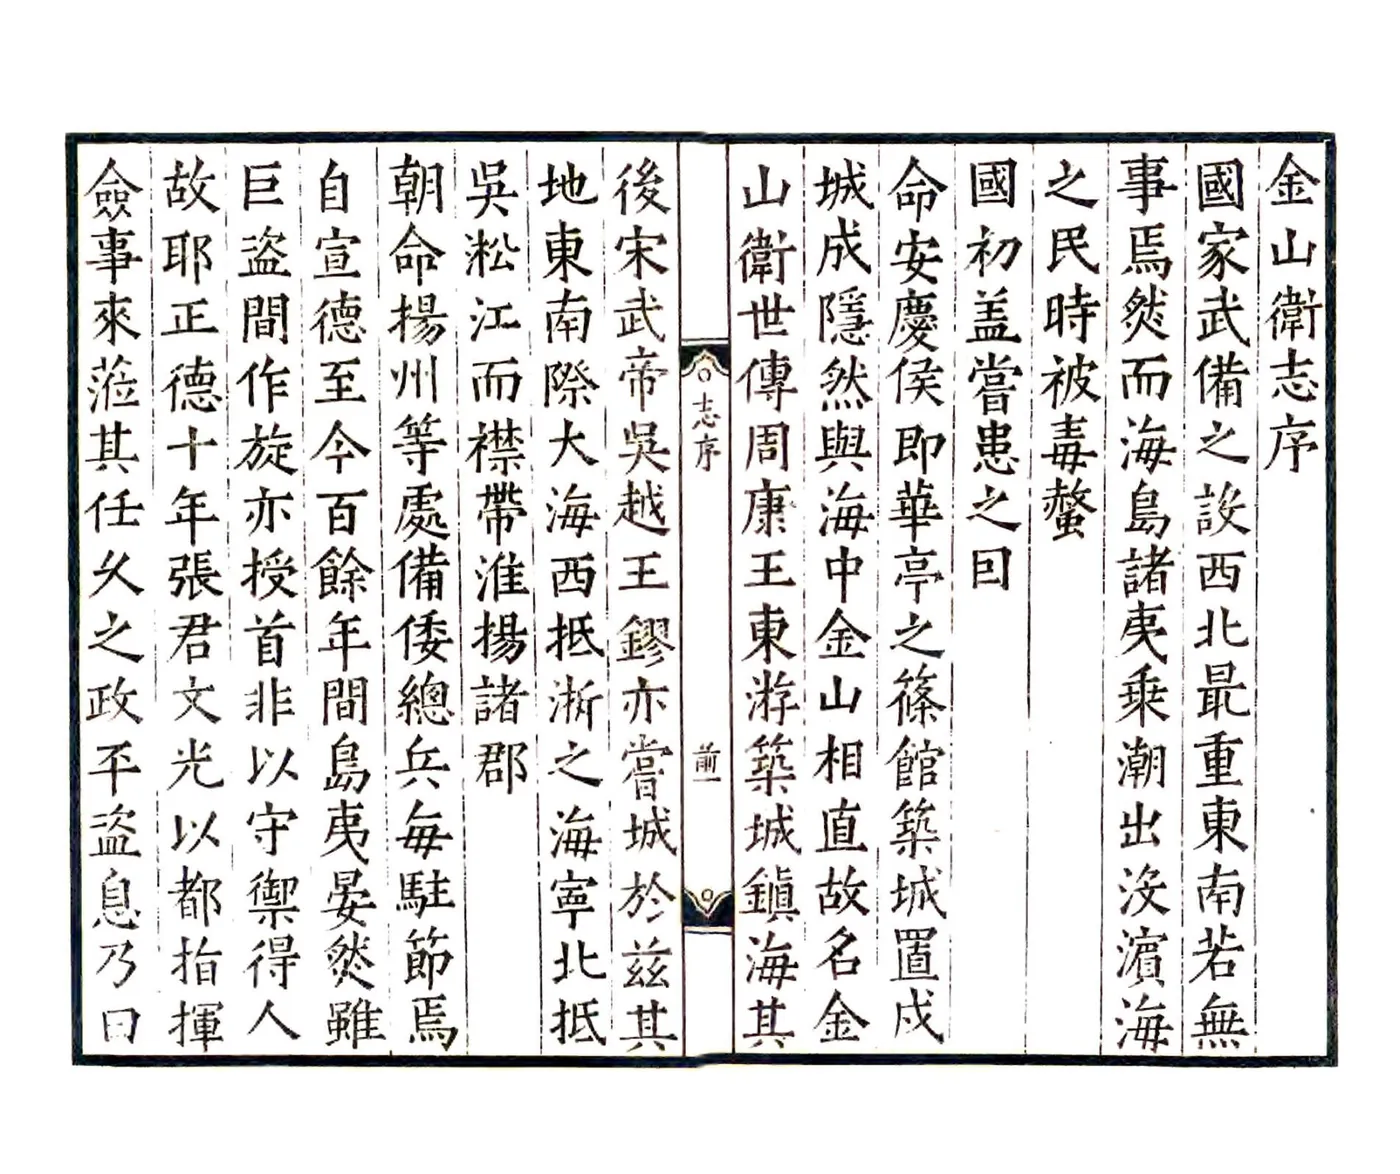 金山衛志序
國家武備之設西北最重東南若無
事焉然而海島諸夷乗潮出沒濵海
之民時被毒螫
國初盖嘗患之囙
命安慶侯即華亭之篠館築城置戍
城成隱然與海中金山相直故名金
山衛世傳周康王東游築城鎮海其
志序
前一
後宋武帝吳越王鏐亦嘗城於茲其
地東南際大海西抵浙之海寧北抵
吳淞江而襟帶淮揚諸郡
朝命揚州等處備倭總兵毎駐節焉
自宣德至今百餘年間島夷晏然雖
巨盜間作旋亦授首非以守禦得人
故耶正德十年張君文光以都指揮
僉事來蒞其任久之政平盜息乃曰